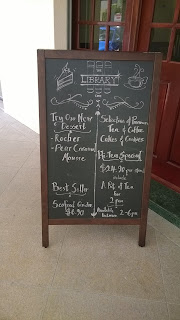 THE
LIBRARY
Try Our New
Dessert
- Rocher
- Pear Caramel
Mousse
Best Seller
Seafood
$8.90
Selection of Premium
Tea & Coffee
Cakes & Cookies
Hi-Tea Special
$24.90
A Pot of Tea
for
2 pax
Available
between 2-6pm